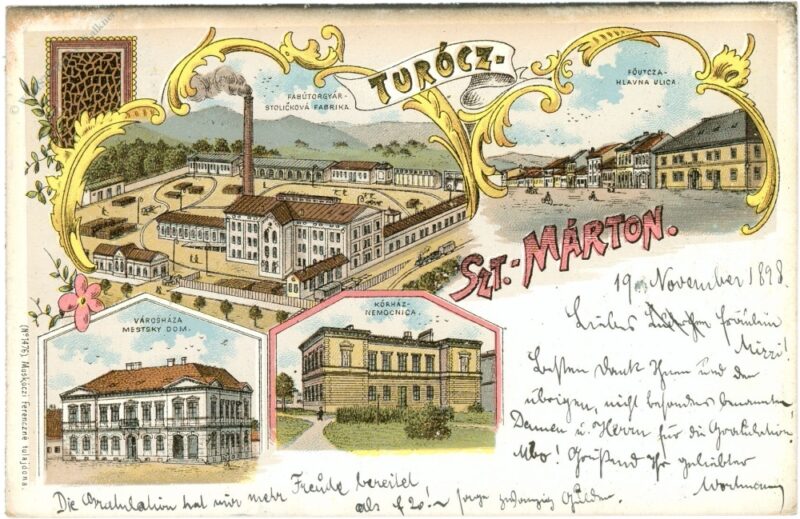 TURÓCZ-
SZT.-MÁRTON.
FABÚTORGYÁR-
STOLIČKOVÁ FABRIKA.
FŐUTCZA-
HLAVNA ULICA.
VÁROSHÁZA
MESTSKY DOM.
KÓRHÁZ-
NEMOCNICA.
(Nº 1476) Moskóczi Ferenczné tulajdona.
19. November 1898.
Liebes Fräulein
Mizzi!
Besten Dank Ihnen und den
übrigen, nicht besonders benannten
Damen u. Herrn für die Gratulation!
Grüßend Ihr geliebter
Die Gratulation hat mir mehr Freude bereitet
als f 20!- sage zwanzig Gulden.